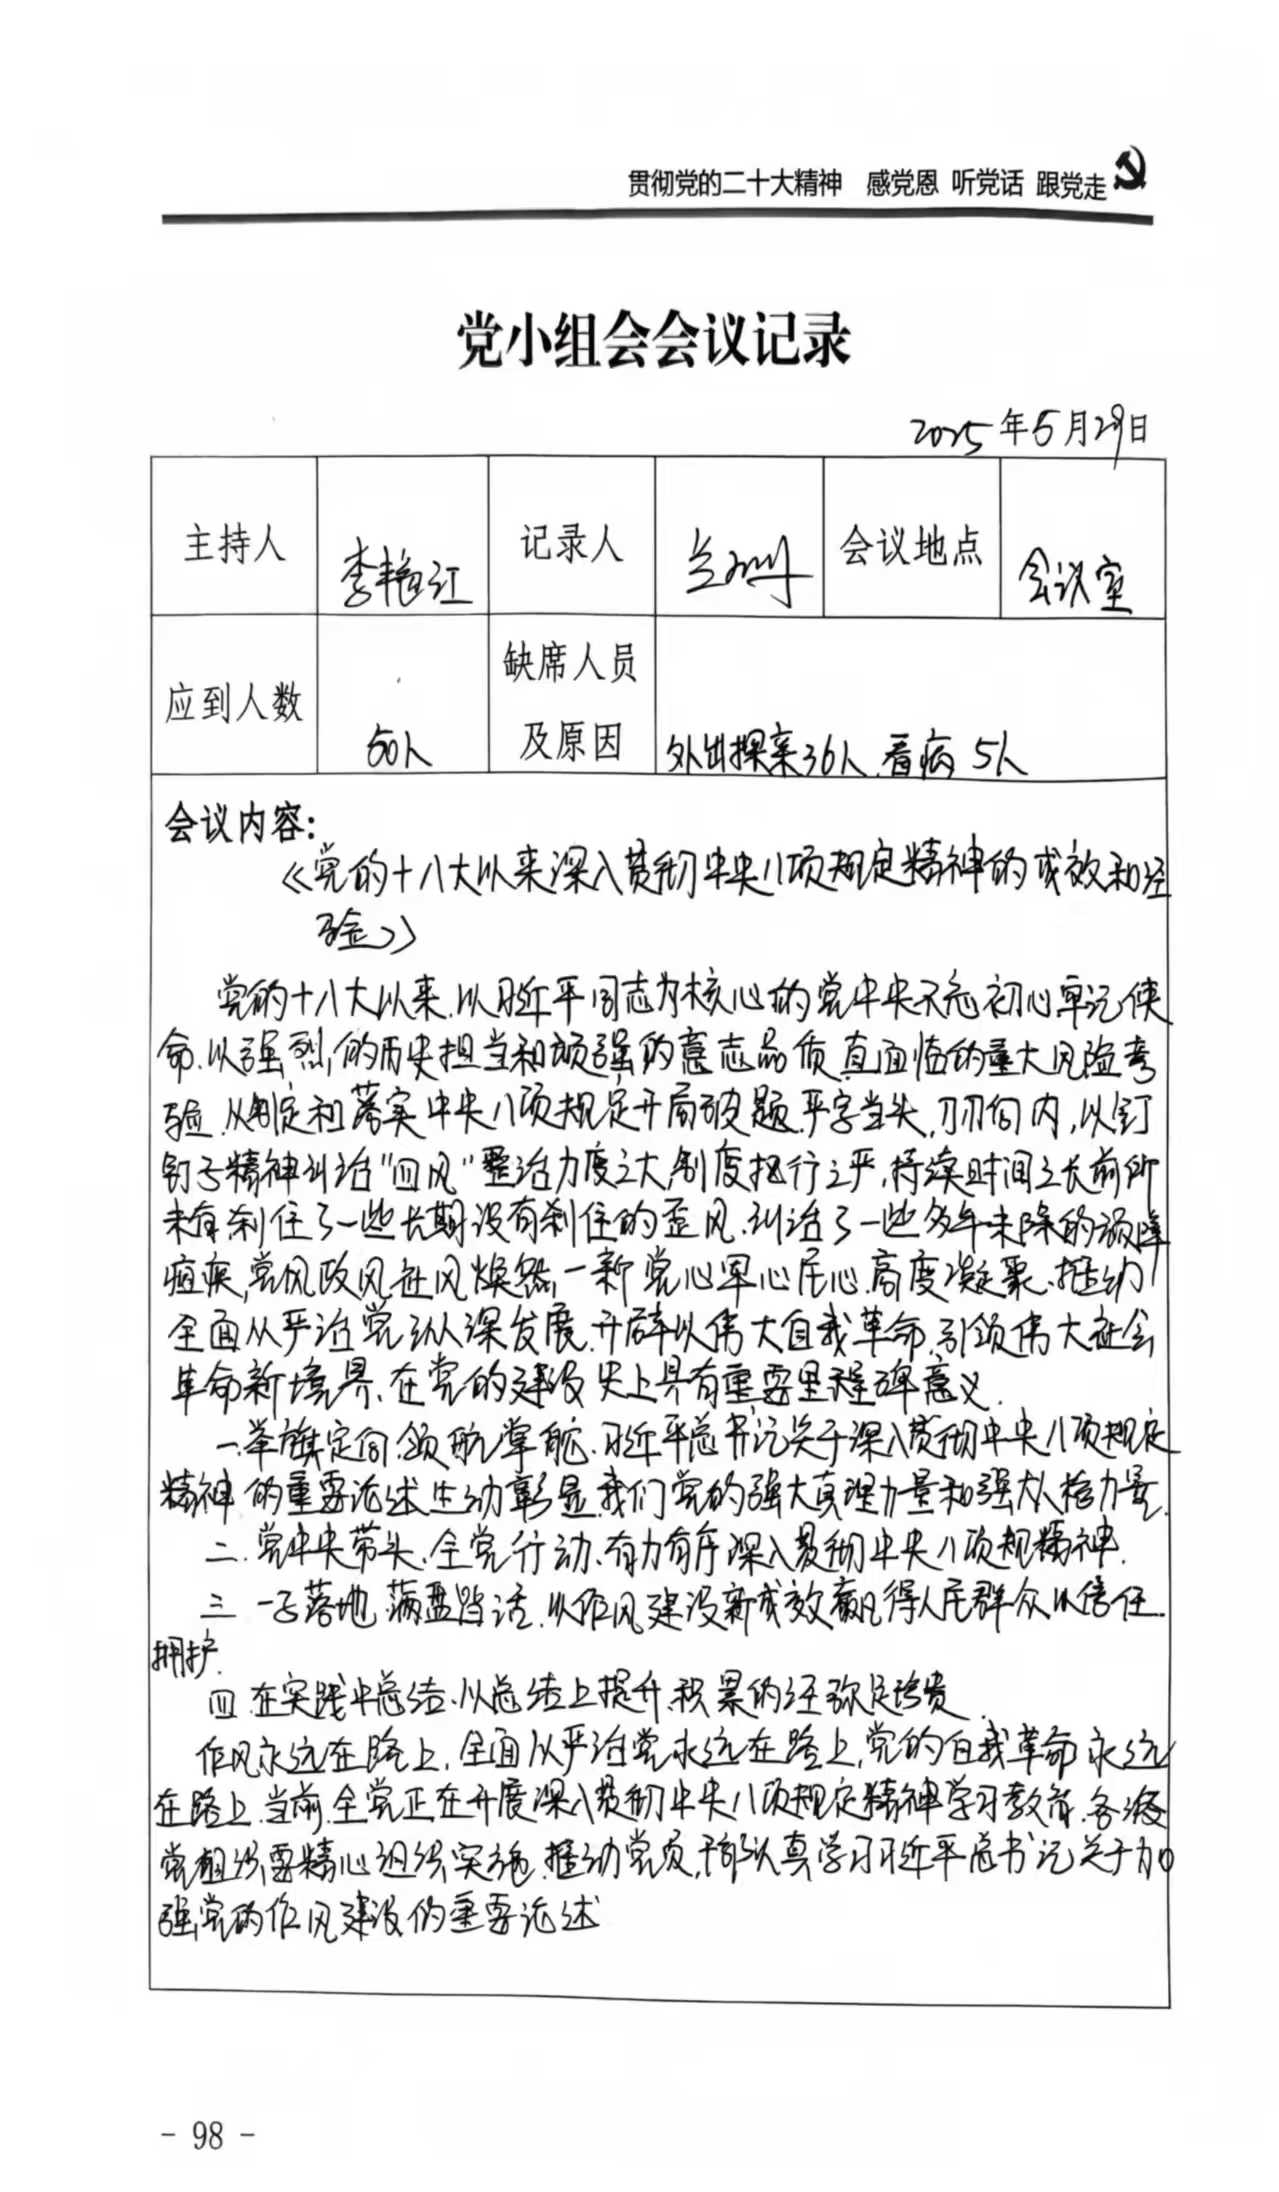 贯彻党的二十大精神 感党恩 听党话 跟党走
党小组会会议记录
2025年5月29日
主持人 李艳江 记录人 会议地点 会议室
应到人数 50人 缺席人员及原因 外出探亲36人.看病5人
会议内容:
《党的十八大以来深入贯彻中央八项规定精神的成效和经
验》
党的十八大以来.以习近平同志为核心的党中央不忘初心牢记使
命.以强烈的历史担当和顽强的意志品质直面临的重大风险考
验.从制定和落实中央八项规定开局破题.严字当头,刀刃向内,以钉
钉子精神纠治"四风"整治力度之大,制度执行之严,持续时间之长前所
未有刹住了一些长期没有刹住的歪风.纠治了一些多年未除的顽瘴
痼疾,党风政风社风焕然一新党心军心民心高度凝聚.推动
全面从严治党纵深发展.开辟以伟大自我革命引领伟大社会
革命新境界.在党的建设史上具有重要里程碑意义.
一.举旗定向领航掌舵.习近平总书记关于深入贯彻中央八项规定
精神的重要论述生动彰显我们党的强大真理力量和强大人格力量.
二.党中央带头.全党行动.有力有序深入贯彻中央八项规精神.
三 一子落地满盘皆活.以作风建设新成效赢得人民群众以信任.
拥护.
四.在实践中总结.以总结上提升.积累的经弥足珍贵.
作风永远在路上.全面从严治党永远在路上,党的自我革命永远
在路上.当前.全党正在开展深入贯彻中央八项规定精神学习教育.各级
党组织要精心组织实施.推动党员,干部认真学习习近平总书记关于加
强党的作风建设的重要论述
- 98 -